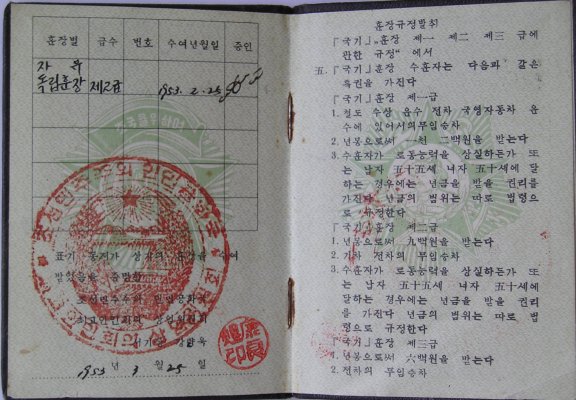 훈장별 급수 번호 수여년월일 증인
자유
독립훈장 제2급 1953. 2. 25
표기 동지가 상기의 훈장을
받았음을 증명함
조선민주주의 인민공화국
최고인민회의 상임위원회
서기장 강량욱
1953 년 3 월 25 일
훈장규정발취
「국기」훈장 제一 제二 제三 급에
관한 규정" 에서
五. 「국기」훈장 수훈자는 다음과 같은
특권을 가진다
「국기」훈장 제一급
1. 철도 수상 윤수 전차 국영자동차 운
수에 있어서의무임승차
2. 년봉으로써 一천 二백원을 받는다
3. 수훈자가 로동능력을 상실하든가 또
는 남자 五十五세 녀자 五十세에 달
하는 경우에는 년금을 받을 권리를
가진다 년금의 범위는 따로 법령으
로 규정한다
「국기」훈장 제二급
1. 년봉으로써 九백원을 받는다
2. 기차 전차의 무임승차
3. 수훈자가 로동능력을 상실하든가 또
는 남자 五十五세 녀자 五十세에
달하는 경우에는 년금을 받을 권리
를 가진다 년금의 범위는 따로 법
령으로 규정한다
「국기」훈장 제三급
1. 년봉으로써 六백원을 받는다
2. 전차의 무임승차